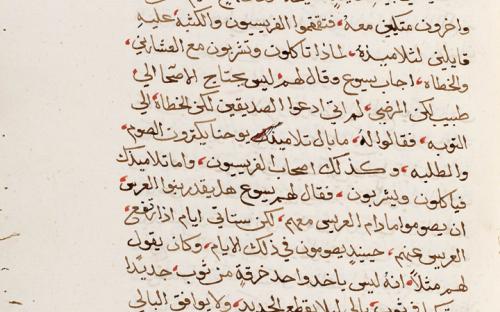 واخرون متكيين معه، فتقمقموا الفريسيون والكتبة عليه
قايلين لتلاميذه، لماذا تاكلون وتشربون مع العشارين،
والخطاه، اجاب يسوع وقال لهم ليس يحتاج الاصحا الي
طبيب لكن المرضي، لم اتي ادعوا الصديقين لكن الخطاه الي
التوبه، فقالوا له، مابال تلاميذ يوحنا يكترون الصوم،
والطلبه، وكذلك اصحاب الفريسيون، واما تلاميذك
فياكلون ويشربون، فقال لهم يسوع هل يقدر بنوا العرس
ان يصوموا مادام العريس معهم، لكن ستاتي ايام اذا ارتفع
العريس عنهم، حينيد يصومون في ذلك الايام، وكان يقول
لهم مثلا، انه ليس ياخد واحد خرقه من ثوب، جديدا
ثوب، بالي ليلا يقطع الجديد، ولا يوافق البالي